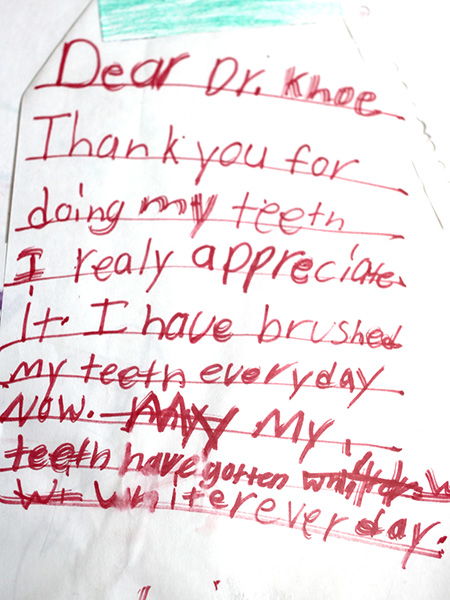 Dear Dr. Khoe
Thank you for
doing my teeth
I realy appreciate
it. I have brushed
my teeth everyday
Now. My
teeth have gotten
whiter everday.